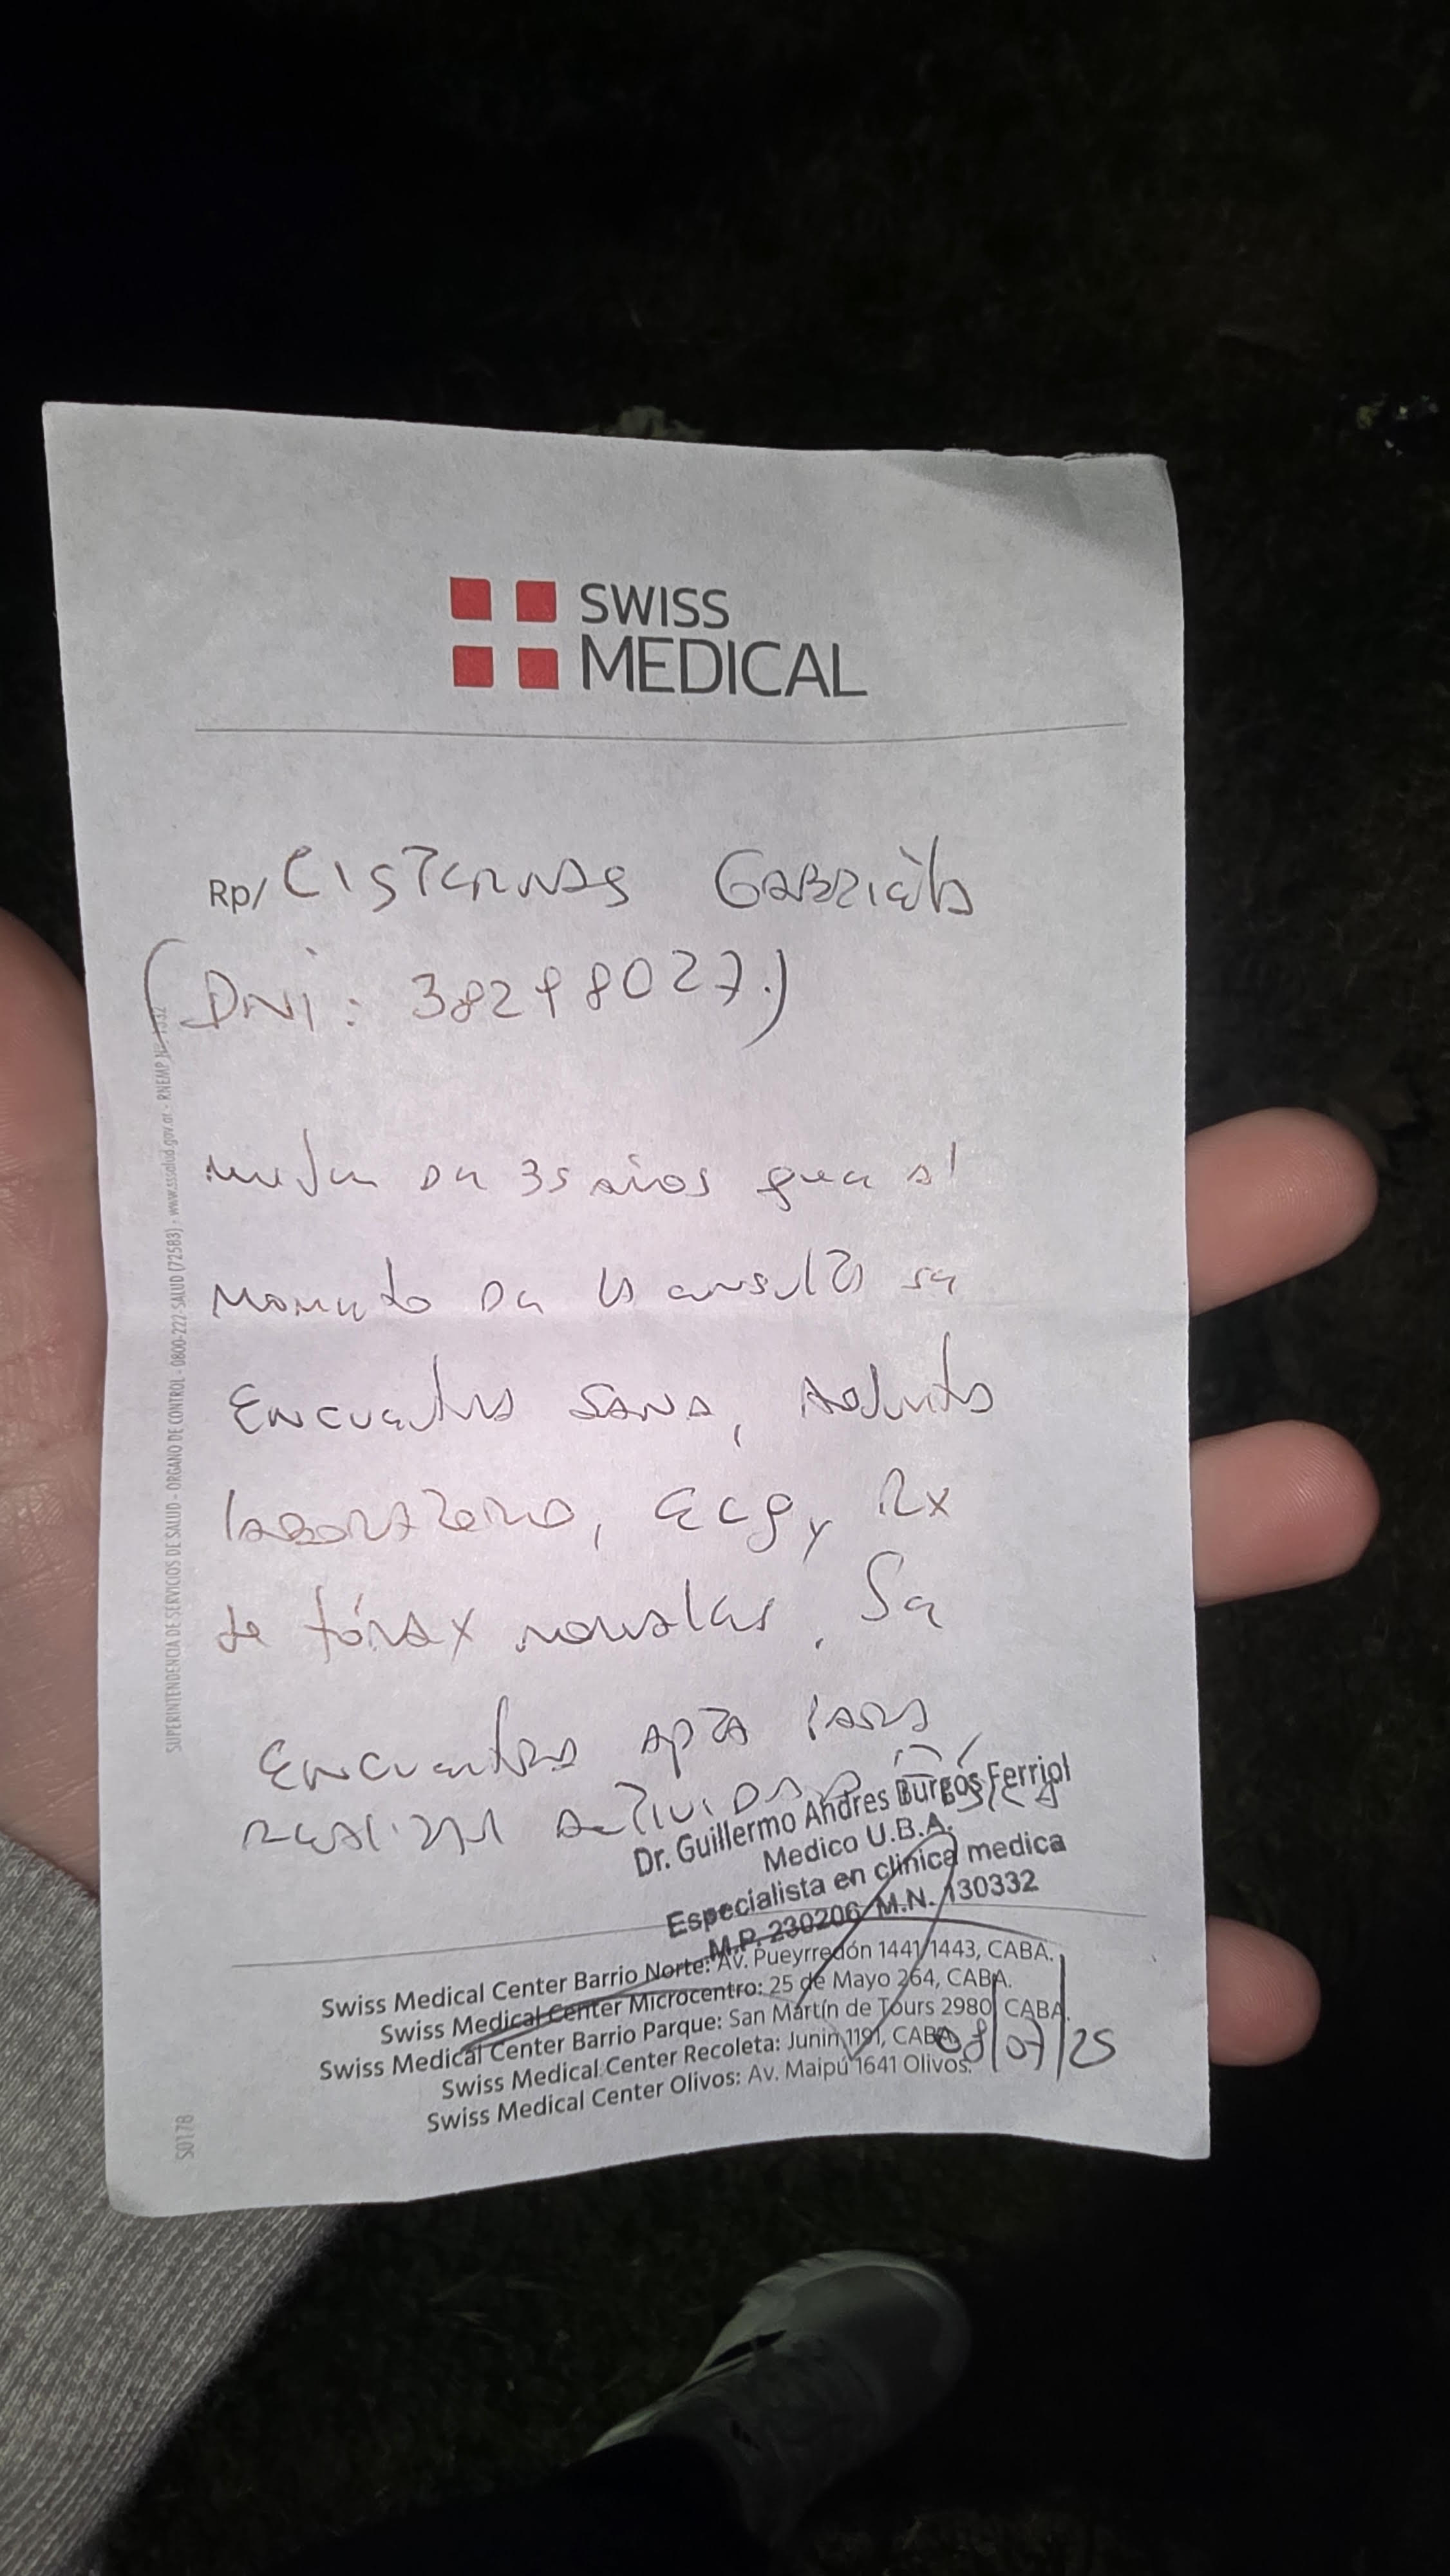 SWISS
MEDICAL
Rp/ Cisternas Gabriela
(DNI: 38298027.)
mujer de 35 años que al
momento de la consulta se
Encuentra sana, Adjunto
laboratorio, ecg y Rx
de tórax normales. Se
Encuentra apta para
realizar actividad física
Dr. Guillermo Andres Burgos Ferriol
Medico U.B.A.
Especialista en clinica medica
M.P. 230206 M.N. 130332
Swiss Medical Center Barrio Norte: Av. Pueyrredón 1441/1443, CABA.
Swiss Medical Center Microcentro: 25 de Mayo 264, CABA.
Swiss Medical Center Barrio Parque: San Martín de Tours 2980, CABA.
Swiss Medical Center Recoleta: Junin 1191, CABA.
Swiss Medical Center Olivos: Av. Maipú 1641 Olivos.
08/07/25
SUPERINTENDENCIA DE SERVICIOS DE SALUD - ORGANO DE CONTROL - 0800-222-SALUD (72583) - www.sssalud.gov.ar - RNEMP Nº 1332
S0178